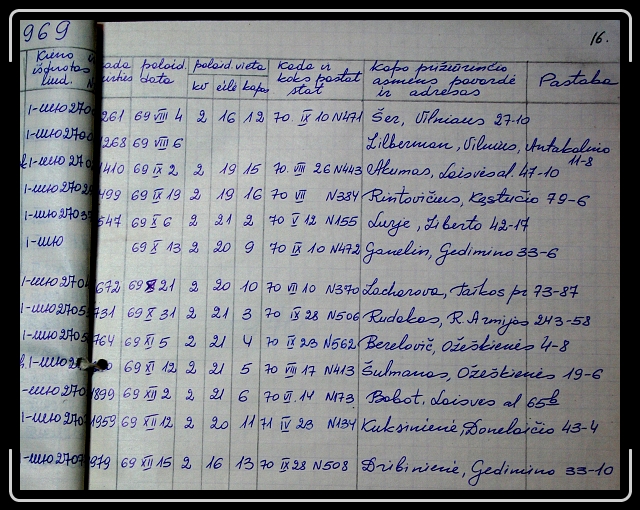 969
16.
Kieno išduotas liud.
palaid. data
palaid. vieta
kv eilė kapas
Kada ir koks pastat stat
Kapo prižiūrinčio asmens pavardė ir adresas
Pastaba
261 69 VIII 4 2 16 12 70. IX 10 N471 Šer, Vilniaus 27-10
1268 69 VIII 6 Lilberman, Vilnius, Antakalnio 11-8
1410 69 IX 2 2 19 15 70. VIII 26 N443 Akumas, Laisvės al. 47-10
499 69 IX 19 2 19 16 70 VII N384 Rintovičius, Kęstučio 79-6
547 69 X 6 2 21 2 70 V 12 N155 Lurje, Liberto 42-17
I-ШЮ 69 X 13 2 20 9 70 IX 10 N472 Ganelin, Gedimino 33-6
672 69 X 21 2 20 10 70 VII 10 N370 Lacharova, Taikos pr 73-87
731 69 X 31 2 21 3 70 IX 28 N506 Rudakas, R. Armijos 243-58
764 69 XI 5 2 21 4 70 IX 23 N562 Berelovič, Ožeškienės 4-8
69 XI 12 2 21 5 70 VIII 17 N413 Šulmanas, Ožeškienės 19-6
1899 69 XII 2 2 21 6 70 VI. 14 N173 Bobot, Laisvės al 65b
1959 69 XII 12 2 20 11 71 IV 23 N134 Kuksinienė, Donelaičio 43-4
979 69 XII 15 2 16 13 70 IX 28 N508 Dribinienė, Gedimino 33-10